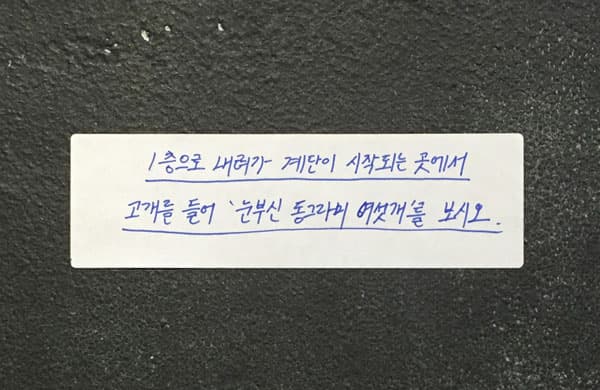 1층으로 내려가 계단이 시작되는 곳에서
고개를 들어 '눈부신 동그라미 여섯개'를 보시오.